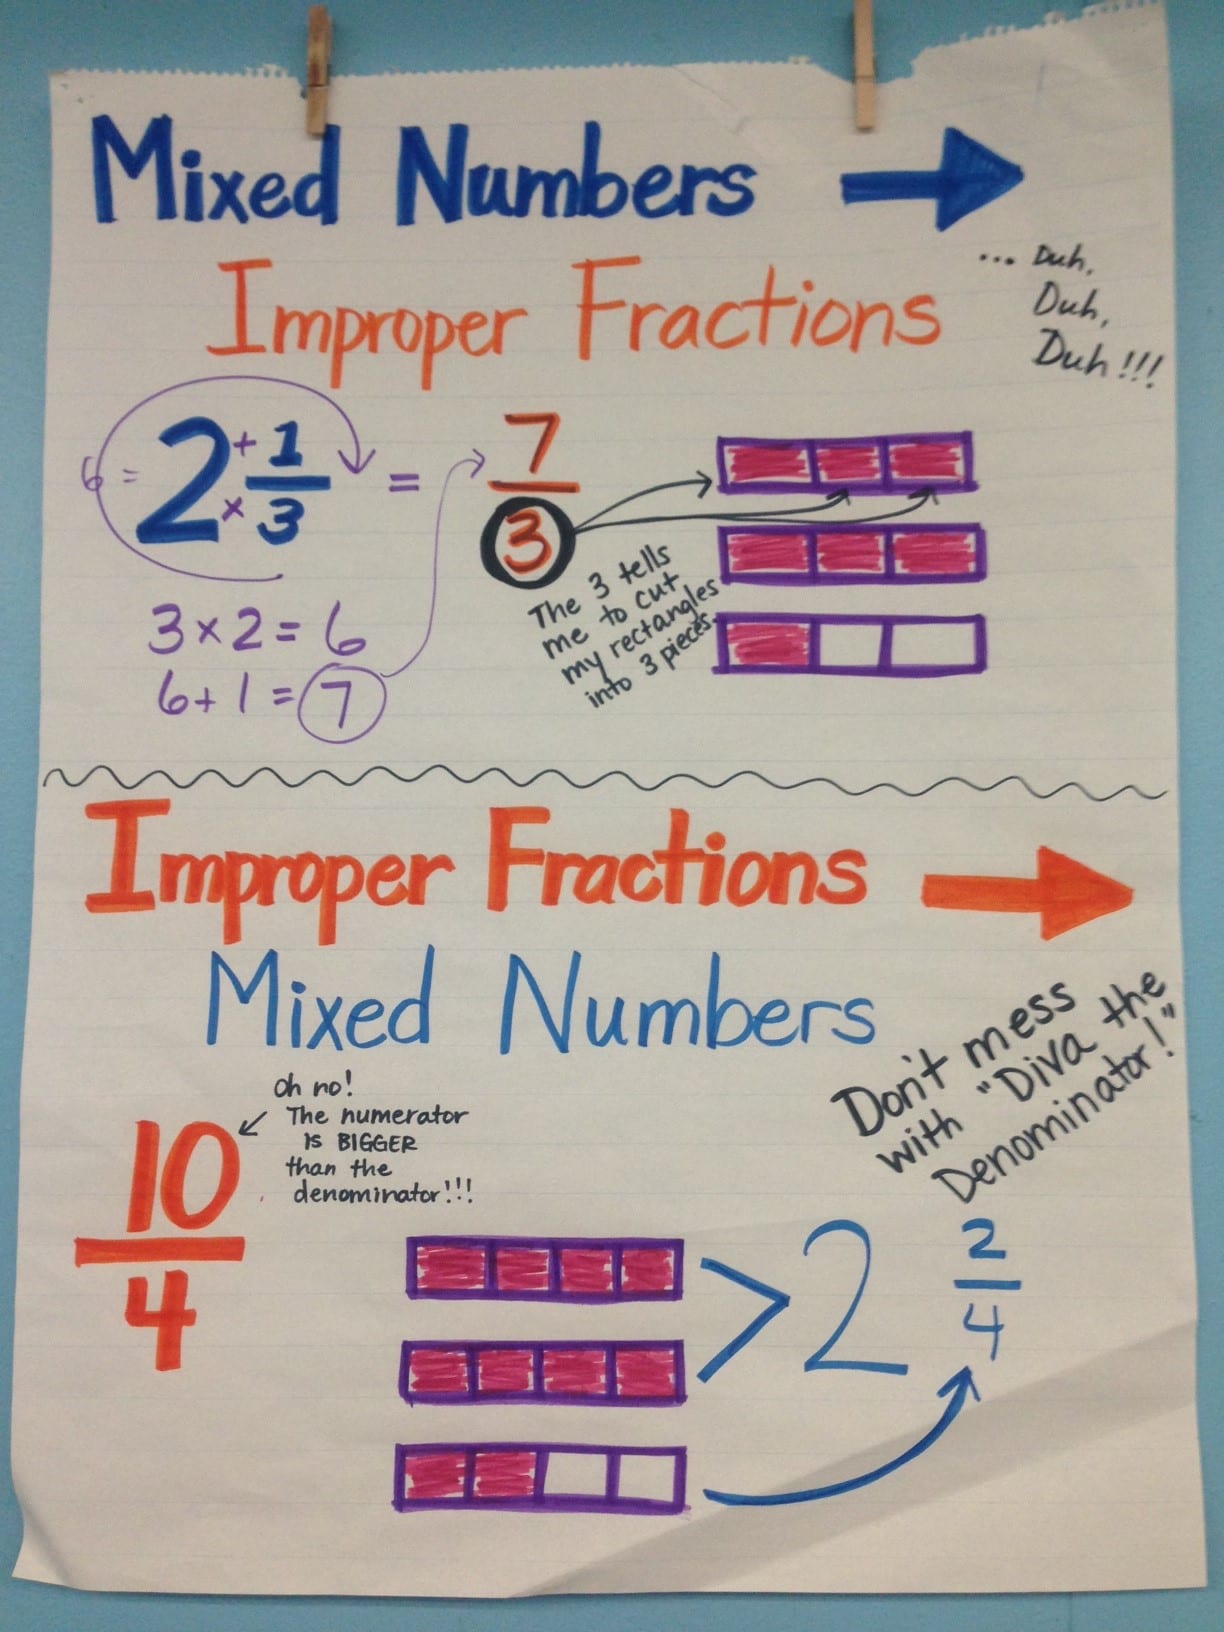 Mixed Numbers
Improper Fractions
... Duh,
Duh,
Duh!!!
6 = 2 + 1/3 × = 7/3
3 × 2 = 6
6 + 1 = 7
The 3 tells
me to cut
my rectangles
into 3 pieces.
Improper Fractions
Mixed Numbers
Don't mess
with "Diva the
Denominator!"
Oh no!
The numerator
is BIGGER
than the
denominator!!!
10/4
> 2 2/4